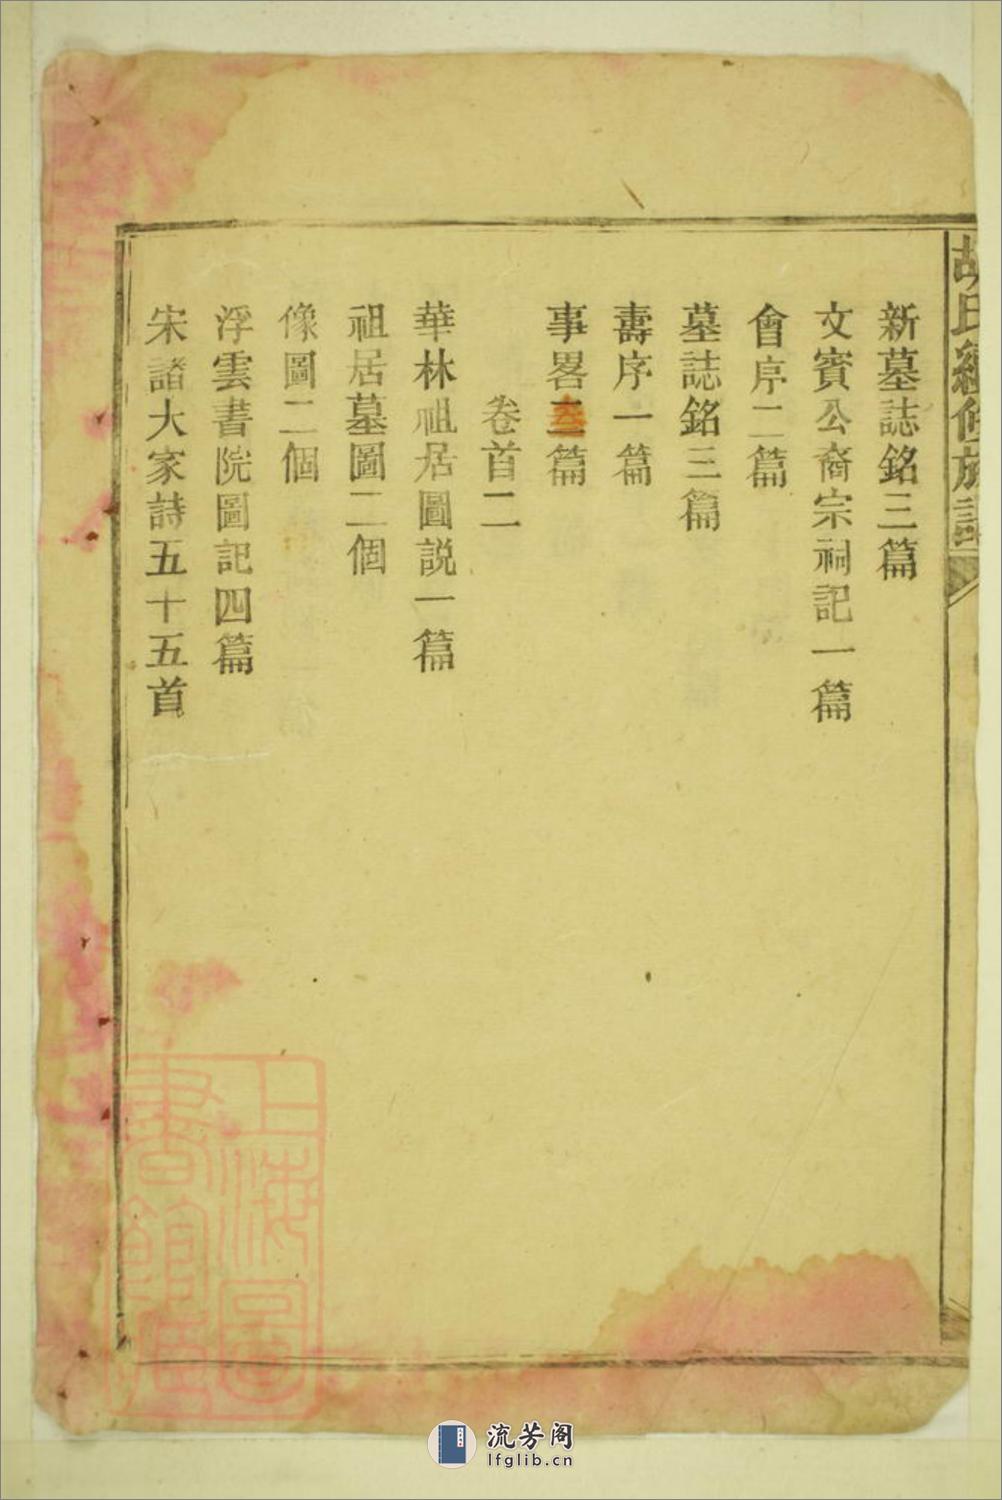 胡氏續修族譜
新墓誌銘三篇
文賓公裔宗祠記一篇
會序二篇
墓誌銘三篇
壽序一篇
事畧三篇
卷首二
華林祖居圖説一篇
祖居墓圖二個
像圖二個
浮雲書院圖記四篇
宋諸大家詩五十五首
上海圖
書館藏
流芳阁
lfglib.cn